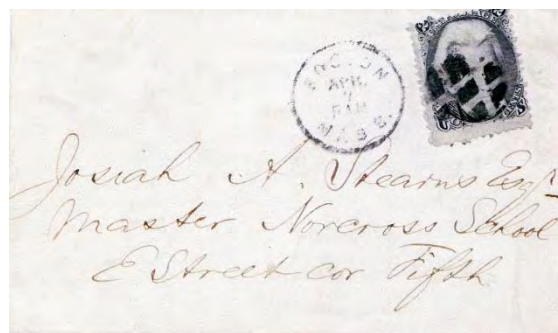 BOSTON
APR.
MASS.
Josiah A. Stearns Esqr
Master Norcross School
E Street cor Fifth